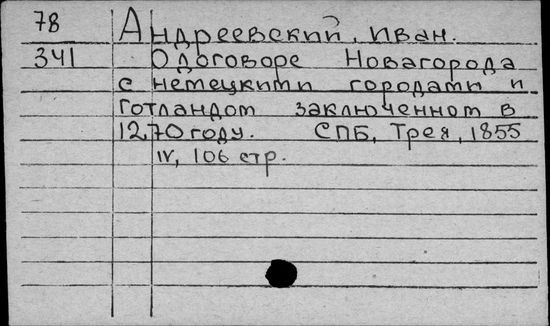 78 Андреевский, Иван.
341 О договоре Новагорода
с немецкими городами и
Готландом заключенном в
1270 году. СПБ, Трея, 1855
IV, 106 стр.